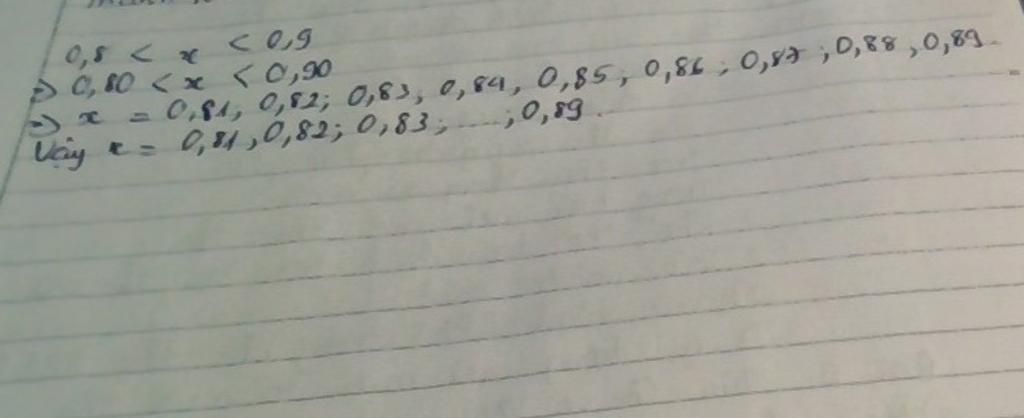 0,8 < x < 0,9
=> 0,80 < x < 0,90
=> x = 0,81, 0,82; 0,83; 0,84, 0,85; 0,86; 0,87; 0,88, 0,89.
Vậy x = 0,81, 0,82; 0,83; ....; 0,89.